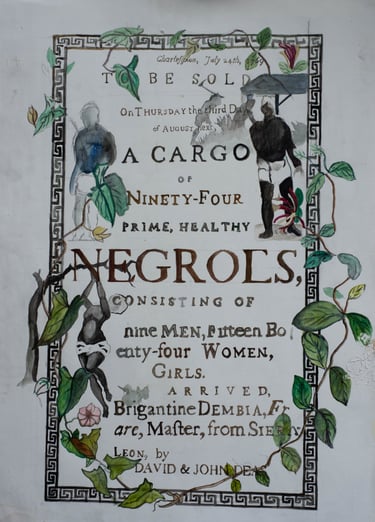 Charlestown, July 24th, 1769
TO BE SOLD
On THURSDAY the third Day
of AUGUST next,
A CARGO
OF
NINETY-FOUR
PRIME, HEALTHY
NEGROES,
CONSISTING OF
nine MEN, Fifteen Bo
enty-four WOMEN,
GIRLS.
ARRIVED,
Brigantine DEMBIA, Fr
are, Master, from SIERR
LEON, by
DAVID & JOHN DEAS